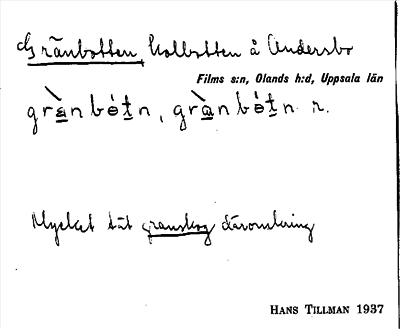 Gränbotten, kolbotten å Andersbo
Films s:n, Olands h:d, Uppsala län
grà̱nbót̠n, grà̱nbót̠n r.
Mycket tät granskog däromkring
HANS TILLMAN 1937